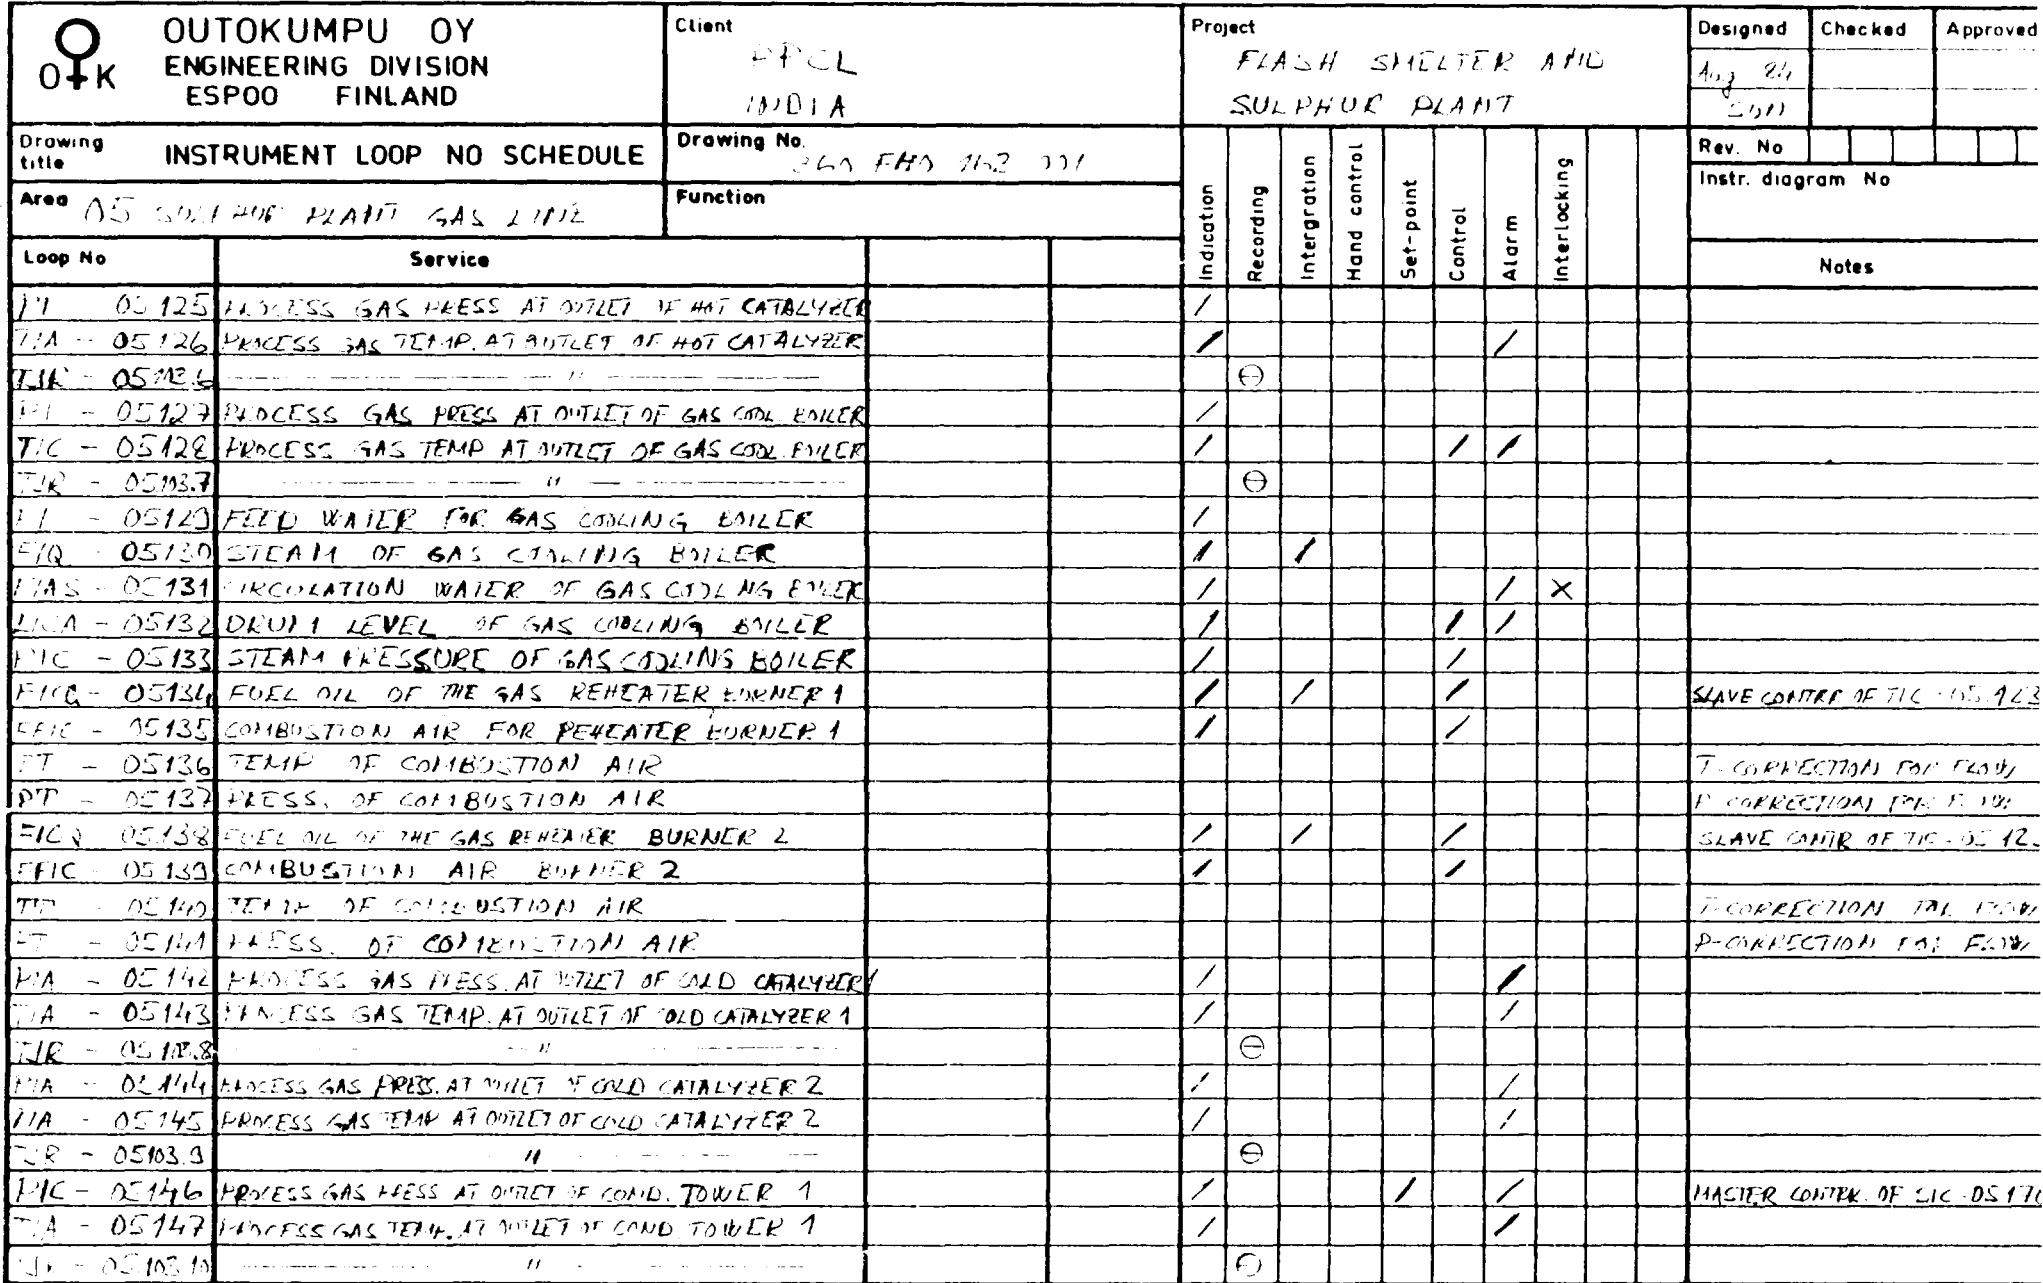 OUTOKUMPU OY
ENGINEERING DIVISION
ESPOO FINLAND
O K
Client
PPCL
INDIA
Project
FLASH SMELTER AND
SULPHUR PLANT
Designed Checked Approved
Aug 84
Drawing title INSTRUMENT LOOP NO SCHEDULE
Drawing No.
Rev. No
Instr. diagram No
Area 05 SULPHUR PLANT GAS LINE
Function
Loop No Service Indication Recording Intergration Hand control Set-point Control Alarm Interlocking Notes
05125 PROCESS GAS PRESS AT OUTLET OF HOT CATALYZER /
TIA - 05126 PROCESS GAS TEMP. AT OUTLET OF HOT CATALYZER / /
TJR - 05103.6 — " — ⊖
PI - 05127 PROCESS GAS PRESS AT OUTLET OF GAS COOL BOILER /
TIC - 05128 PROCESS GAS TEMP AT OUTLET OF GAS COOL. BOILER / / /
TJR - 05103.7 — " — ⊖
- 05129 FEED WATER FOR GAS COOLING BOILER /
FIQ - 05130 STEAM OF GAS COOLING BOILER / /
FIAS - 05131 CIRCULATION WATER OF GAS COOLING BOILER / / X
LICA - 05132 DRUM LEVEL OF GAS COOLING BOILER / / /
PIC - 05133 STEAM PRESSURE OF GAS COOLING BOILER / /
FICQ - 05134 FUEL OIL OF THE GAS REHEATER BURNER 1 / / / SLAVE CONTRR OF TIC - 05123
FFIC - 05135 COMBUSTION AIR FOR REHEATER BURNER 1 / /
- 05136 TEMP OF COMBUSTION AIR T-CORRECTION FOR FLOW
PT - 05137 PRESS. OF COMBUSTION AIR P-CORRECTION FOR FLOW
FICQ 05138 FUEL OIL OF THE GAS REHEATER BURNER 2 / / / SLAVE CONTR OF TIC - 05 12
FFIC - 05139 COMBUSTION AIR BURNER 2 / /
- 05140 TEMP OF COMBUSTION AIR T-CORRECTION FOR FLOW
PT - 05141 PRESS. OF COMBUSTION AIR P-CORRECTION FOR FLOW
PIA - 05142 PROCESS GAS PRESS. AT OUTLET OF COLD CATALYZER 1 / /
TIA - 05143 PROCESS GAS TEMP. AT OUTLET OF COLD CATALYZER 1 / /
TJR - 05103.8 — " — ⊖
PIA - 05144 PROCESS GAS PRESS. AT OUTLET OF COLD CATALYZER 2 / /
TIA - 05145 PROCESS GAS TEMP AT OUTLET OF COLD CATALYZER 2 / /
TJR - 05103.9 " — ⊖
PIC - 05146 PROCESS GAS PRESS AT OUTLET OF COND. TOWER 1 / / / MASTER CONTRR. OF SIC - 0517
TIA - 05147 PROCESS GAS TEMP. AT OUTLET OF COND TOWER 1 / /
TJR - 05103.10 — " — ⊖